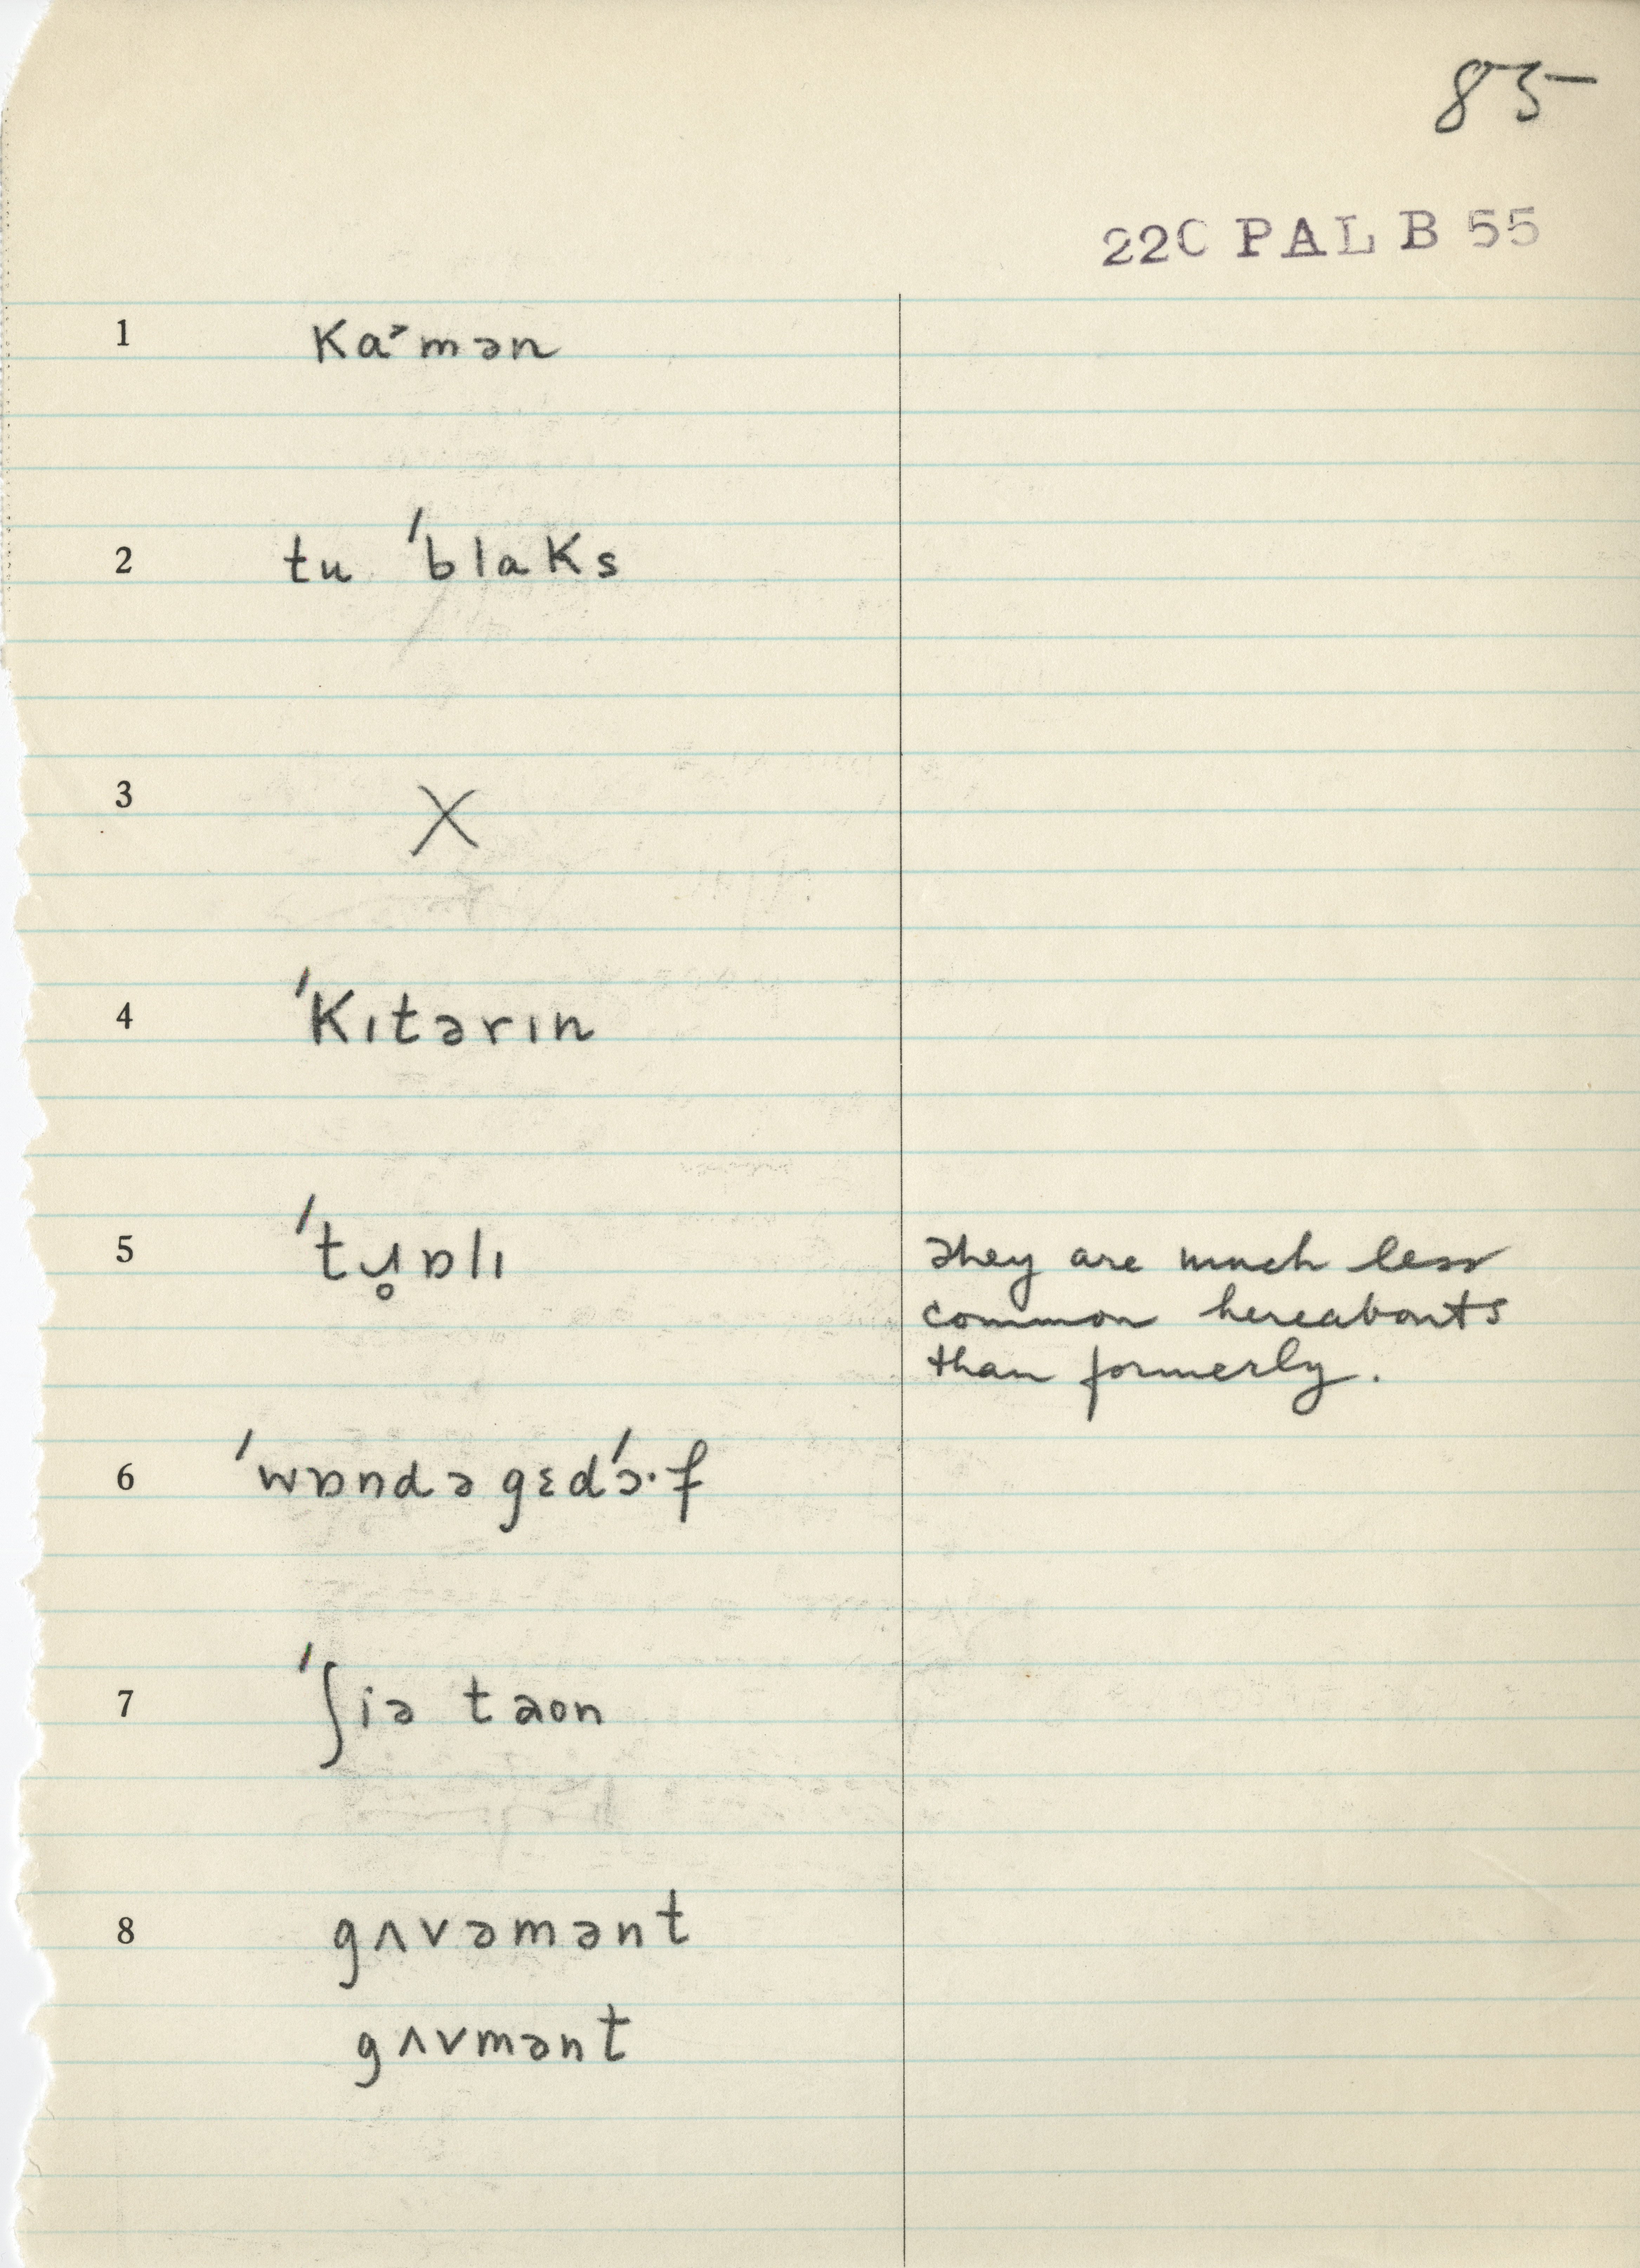 85
22C PAL B 55
1 ka˃mən
2 tu ˈblaks
3 X
4 ˈkɪtərɪn
5 ˈtɹ̥ɒlɪ They are much less
common hereabouts
than formerly.
6 ˈwɒndəgɛdˈɔ·f
7 ˈʃiə taon
8 gʌvəmənt
gʌvmənt